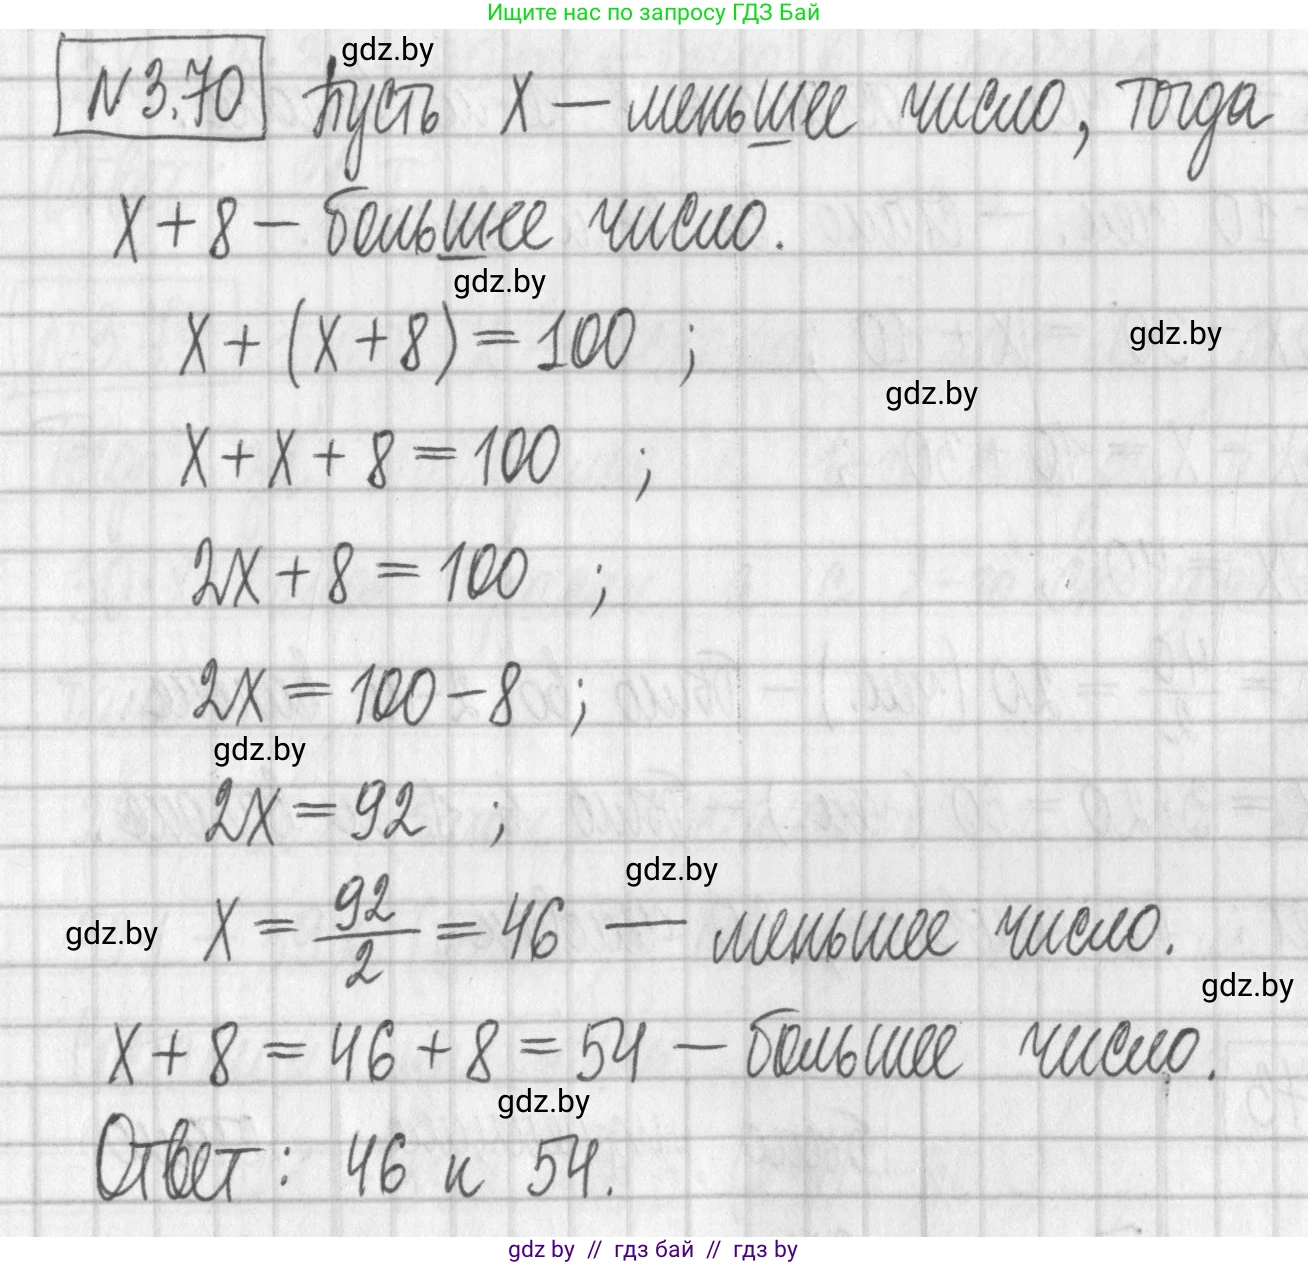 Ищите нас по запросу ГДЗ Бай
gdz.by
N 3.70 Пусть x — меньшее число, тогда
x + 8 — большее число.
gdz.by
x + (x + 8) = 100 ;
gdz.by
gdz.by
x + x + 8 = 100 ;
2x + 8 = 100 ;
2x = 100 - 8 ;
gdz.by
2x = 92 ;
gdz.by
gdz.by
x = 92/2 = 46 — меньшее число.
gdz.by
x + 8 = 46 + 8 = 54 — большее число.
gdz.by
Ответ: 46 и 54.
gdz by // гдз бай // гдз by